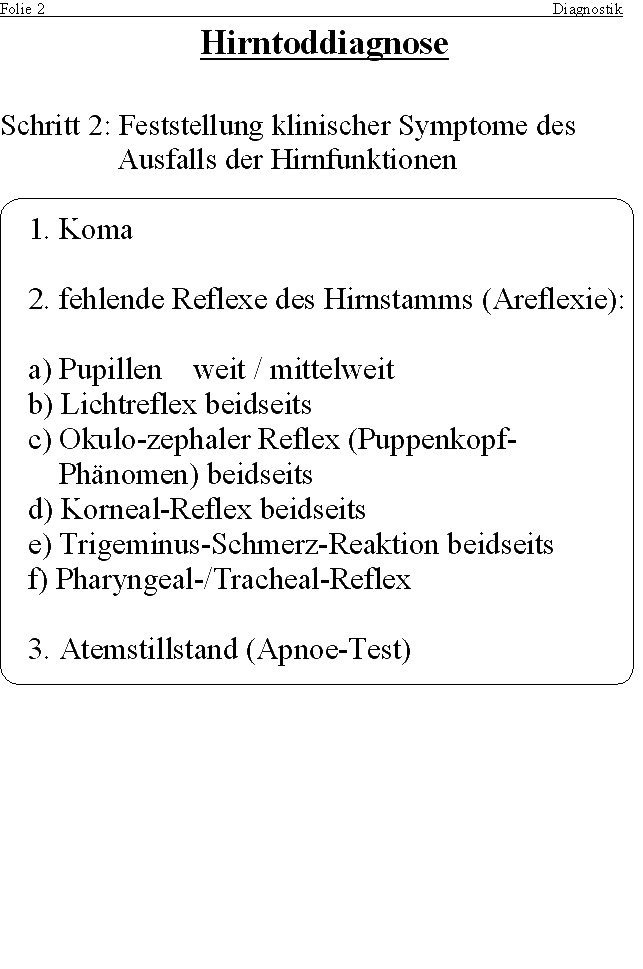 Folie 2 Diagnostik
Hirntoddiagnose
Schritt 2: Feststellung klinischer Symptome des
Ausfalls der Hirnfunktionen
1. Koma
2. fehlende Reflexe des Hirnstamms (Areflexie):
a) Pupillen weit / mittelweit
b) Lichtreflex beidseits
c) Okulo-zephaler Reflex (Puppenkopf-
Phänomen) beidseits
d) Korneal-Reflex beidseits
e) Trigeminus-Schmerz-Reaktion beidseits
f) Pharyngeal-/Tracheal-Reflex
3. Atemstillstand (Apnoe-Test)